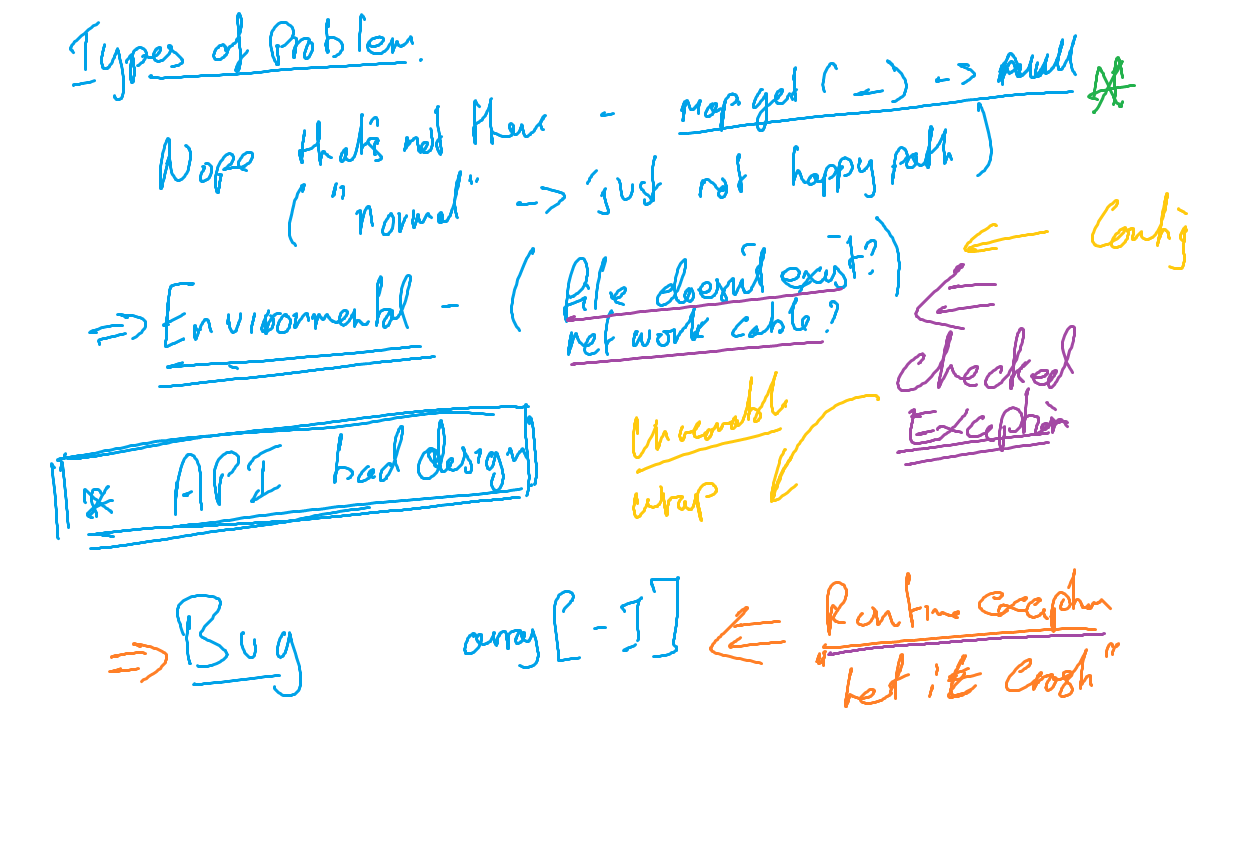 Types of Problem.
Nope that's not there - map get ( _ ) -> null
( "normal" -> 'just not happy path )
=> Environmental - ( file doesn't exist?
network cable? )
<= Config
<= Checked
Exception
* API bad design
wrap
=> Bug array [-1] <= Runtime exception
"Let it crash"